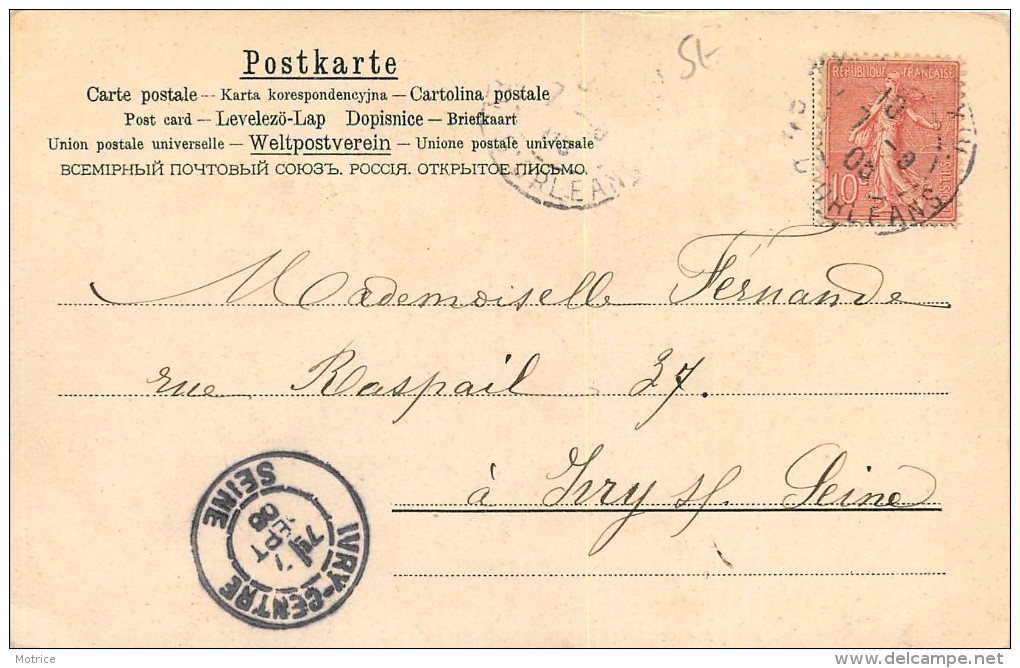 St
Postkarte
Carte postale — Karta korespondencyjna — Cartolina postale
Post card — Levelezö-Lap Dopisnice — Briefkaart
Union postale universelle — Weltpostverein — Unione postale universale
ВСЕМІРНЫЙ ПОЧТОВЫЙ СОЮЗЪ. РОССІЯ. ОТКРЫТОЕ ПИСЬМО.
ORLEANS
REPUBLIQUE FRANÇAISE
10
POSTES
ORLEANS
Mademoiselle Fernande
rue Raspail 37.
à Ivry s/. Seine
IVRY-CENTRE
SEINE
Motrice
delcampe.net